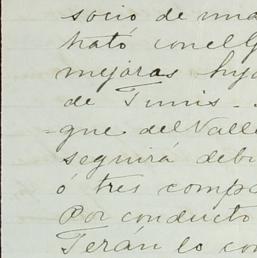 socio de una
trató con el G
mejoras hip
de Tunis.
que del Valle
seguirá debi
ó tres compa
Por conducto
Terán lo con